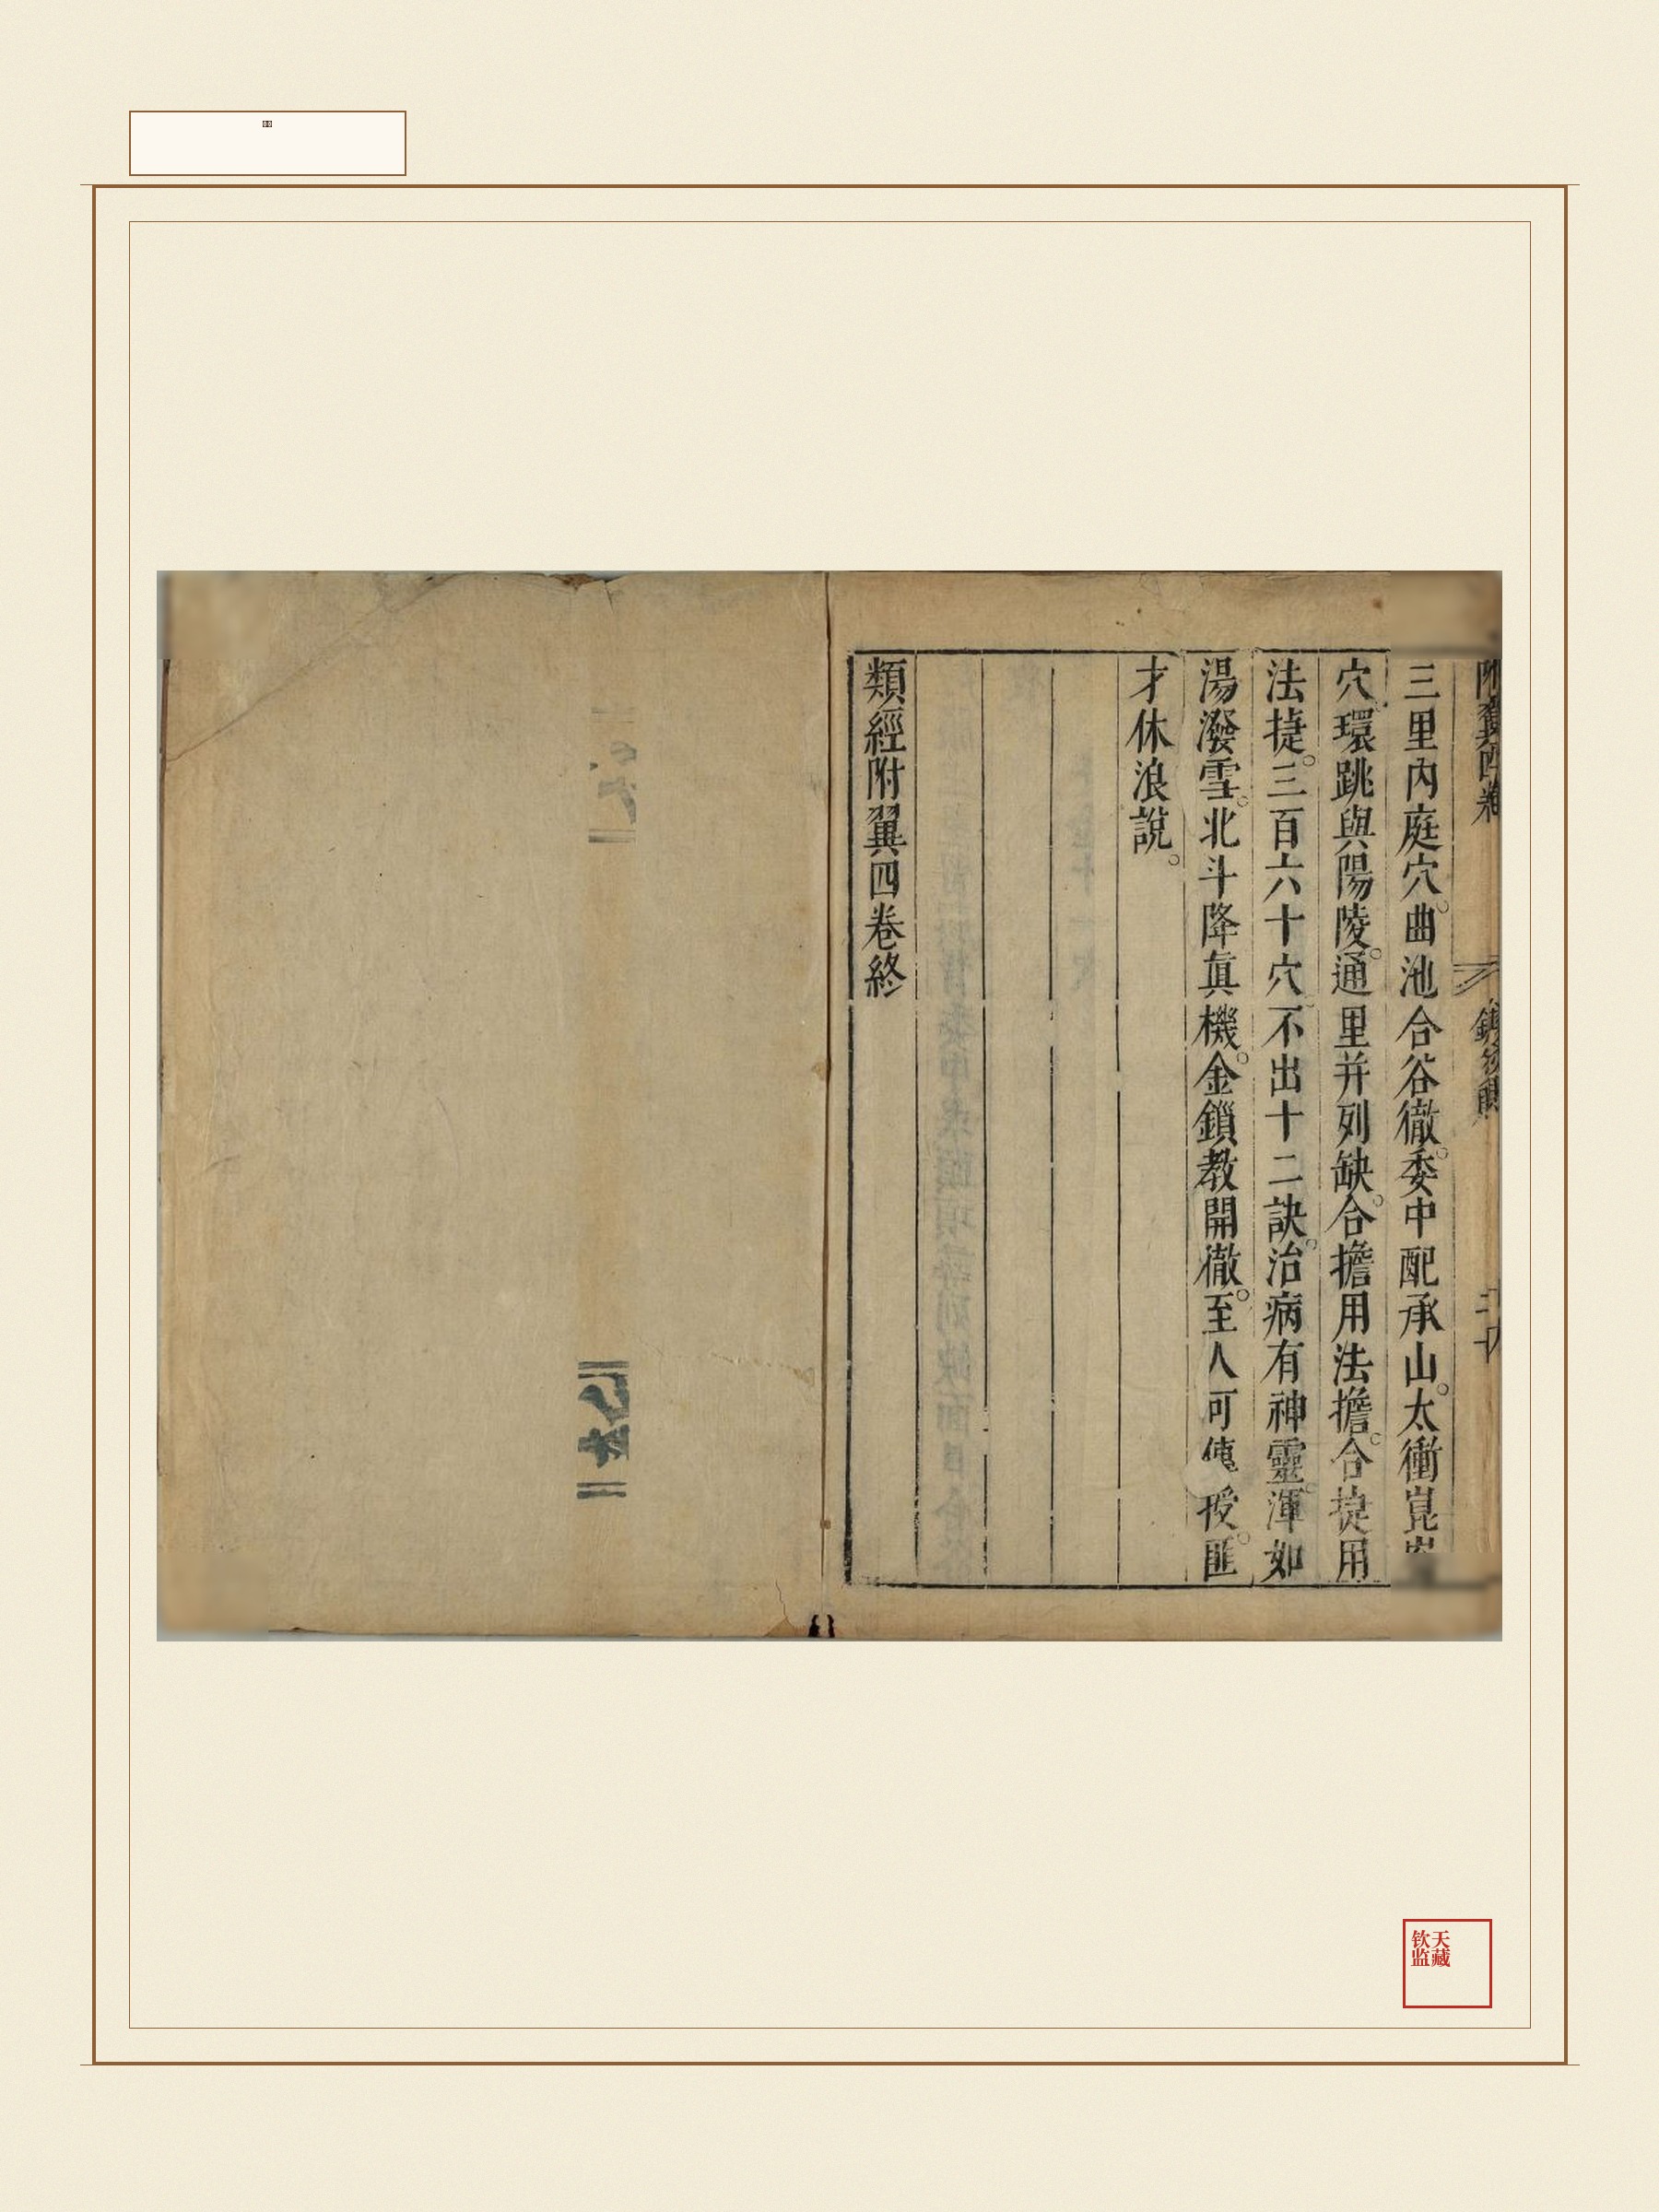 三里內庭穴。曲池合谷徹。委中配承山。太衝崑
穴環跳與陽陵。通里并列缺。合擔用法擔。合㨗用
法㨗。三百六十穴不出十二訣。治病有神靈。渾如
湯潑雪。北斗降真機。金鎖教開徹。至人可傳授。匪
才休浪說。
類經附翼四卷終
天藏
钦监